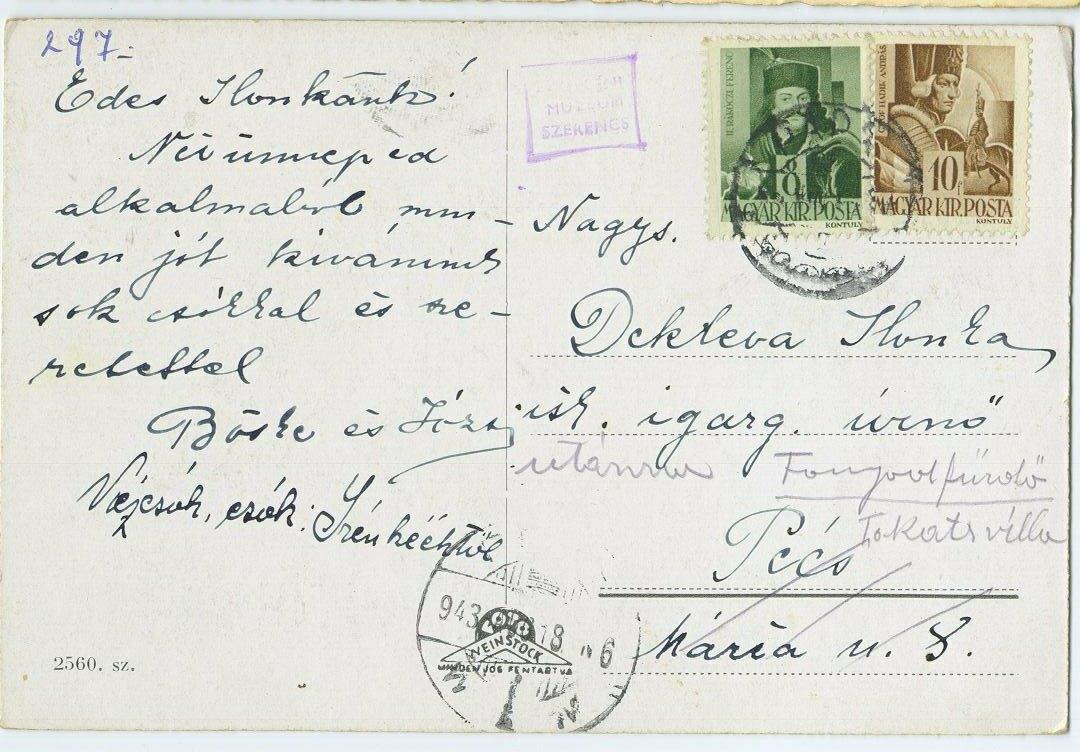 297.
Édes Ilonkánk!
Névünneped
alkalmából min-
den jót kivánunk
sok csókkal és sze-
retettel
Böske és Józsi
csók. Irénkééktől
2560. sz.
MUZEUM
SZERENCS
II. RÁKÓCZI FERENC
MAGYAR KIR. POSTA
KONTULY
HADIK ANDRÁS
10f
MAGYAR KIR. POSTA
KONTULY
Nagys.
Dekleva Ilonka
isk. igazg. úrnő
utánna Fonyódfürdő
Takáts villa
Pécs
Mária u. 8.
943 18
6
FOTO
WEINSTOCK
MINDEN JOG FENTARTVA